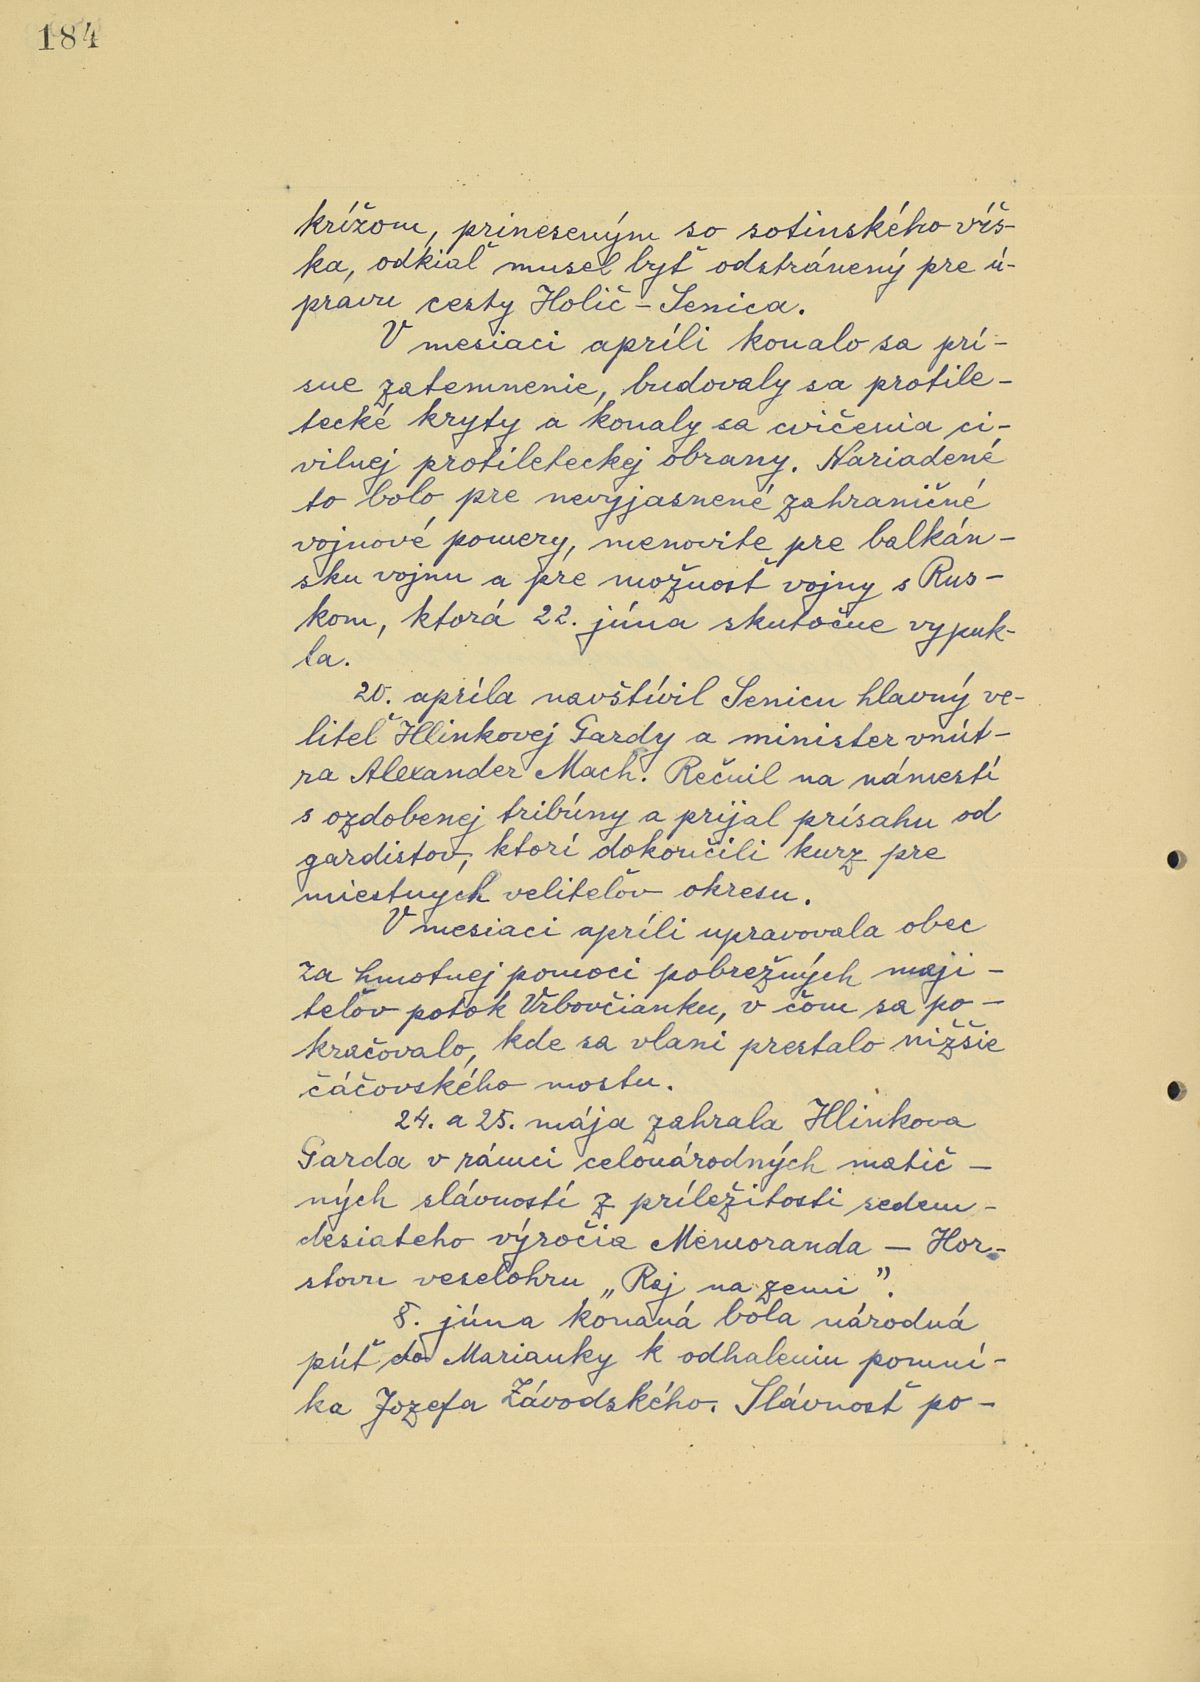 184
krížom, prineseným so sotinského víš-
ka, odkiaľ musel byť odstránený pre ú-
pravu cesty Holíč - Senica.
V mesiaci apríli konalo sa prí-
sne zatemnenie, budovaly sa protile-
tecké kryty a konaly sa cvičenia ci-
vilnej protileteckej obrany. Nariadené
to bolo pre nevyjasnené zahraničné
vojnové pomery, menovite pre balkán-
sku vojnu a pre možnosť vojny s Rus-
kom, ktorá 22. júna skutočne vypuk-
la.
20. apríla navštívil Senicu hlavný ve-
liteľ Hlinkovej Gardy a minister vnút-
ra Alexander Mach. Rečnil na námestí
s ozdobenej tribúny a prijal prísahu od
gardistov, ktorí dokončili kurz pre
miestnych veliteľov okresu.
V mesiaci apríli upravovala obec
za hmotnej pomoci pobrežných maji-
teľov potok Vrbovčianku, v čom sa po-
kračovalo, kde sa vlani prestalo nižšie
čáčovského mostu.
24. a 25. mája zahrala Hlinkova
Garda v rámci celonárodných matič-
ných slávností z príležitosti sedem-
desiateho výročia Memoranda - Hor-
stovu veselohru „Raj na zemi”.
8. júna konaná bola národná
púť do Marianky k odhaleniu pomní-
ka Jozefa Závodského. Slávnosť po-